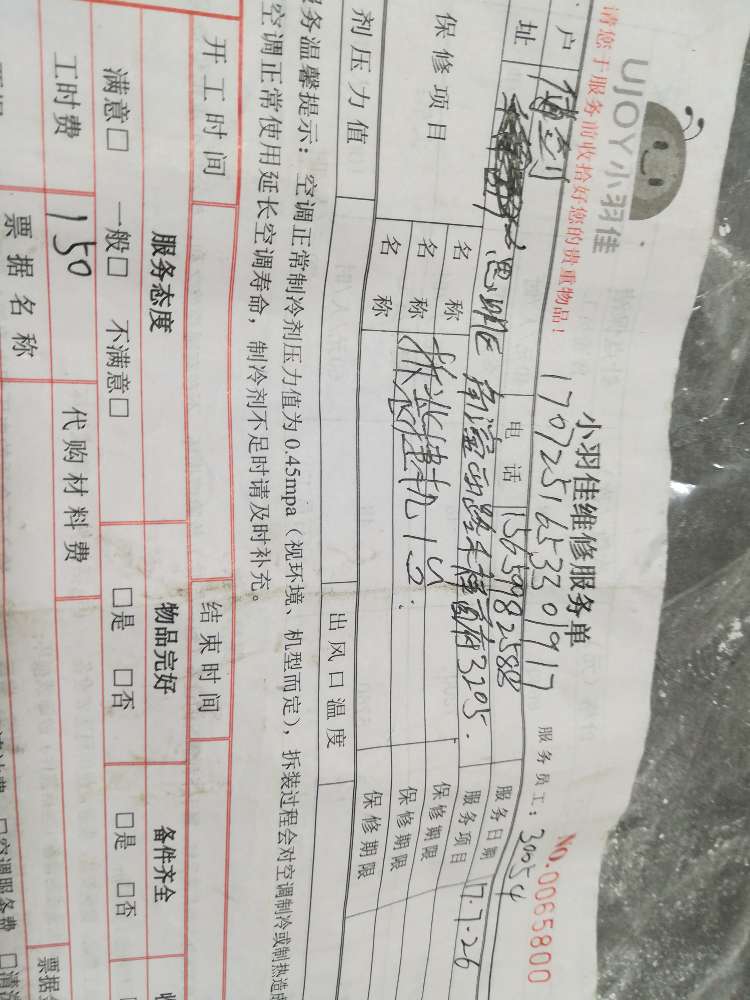 UJOY小羽佳
请您于服务前收拾好您的贵重物品!
小羽佳维修服务单
No.0065800
170725165330917
服务员工: 30054
户
电话 15659982588
服务日期 17.7.26
址 思明区
3205.
服务项目
保修项目
名称
保修期限
名称 挂机1台.
保修期限
名称
保修期限
剂压力值
出风口温度
服务温馨提示: 空调正常制冷剂压力值为0.45mpa(视环境、机型而定), 拆装过程会对空调制冷或制热造成
空调正常使用延长空调寿命, 制冷剂不足时请及时补充。
开工时间
结束时间
服务态度
物品完好
备件齐全
满意□ 一般□ 不满意□
□是 □否
□是 □否
工时费 150
代购材料费
票据名称
□空调服务费